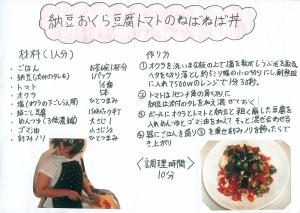 納豆おくら豆腐トマトのねばねば丼
材料(1人分)
・ごはん お茶碗1杯分
・納豆(添付のタレも) 1パック
・トマト
・オクラ 5本
・塩(オクラの下ごしらえ用) ひとつまみ
・絹ごし豆腐
・めんつゆ(3倍濃縮) 大さじ1
・ゴマ油 小さじ1
・刻みノリ ひとつまみ
作り方
①オクラを洗いまな板の上で塩を転がしうぶ毛を取る
ヘタを切り落とし約5ミリ幅の小口切りにし耐熱皿
に入れて500wのレンジで1分30秒。
②トマトは1センチ角の角切りに
納豆は添付のタレを加え混ぜておく
③ボールにオクラとトマトと納豆と粗く崩した豆腐
を入れ、めんつゆとゴマ油を加えてそっと混ぜ合わせる
④器にごはんを盛り③を乗せ刻みノリを飾ったらで
き上がり
調理時間
10分